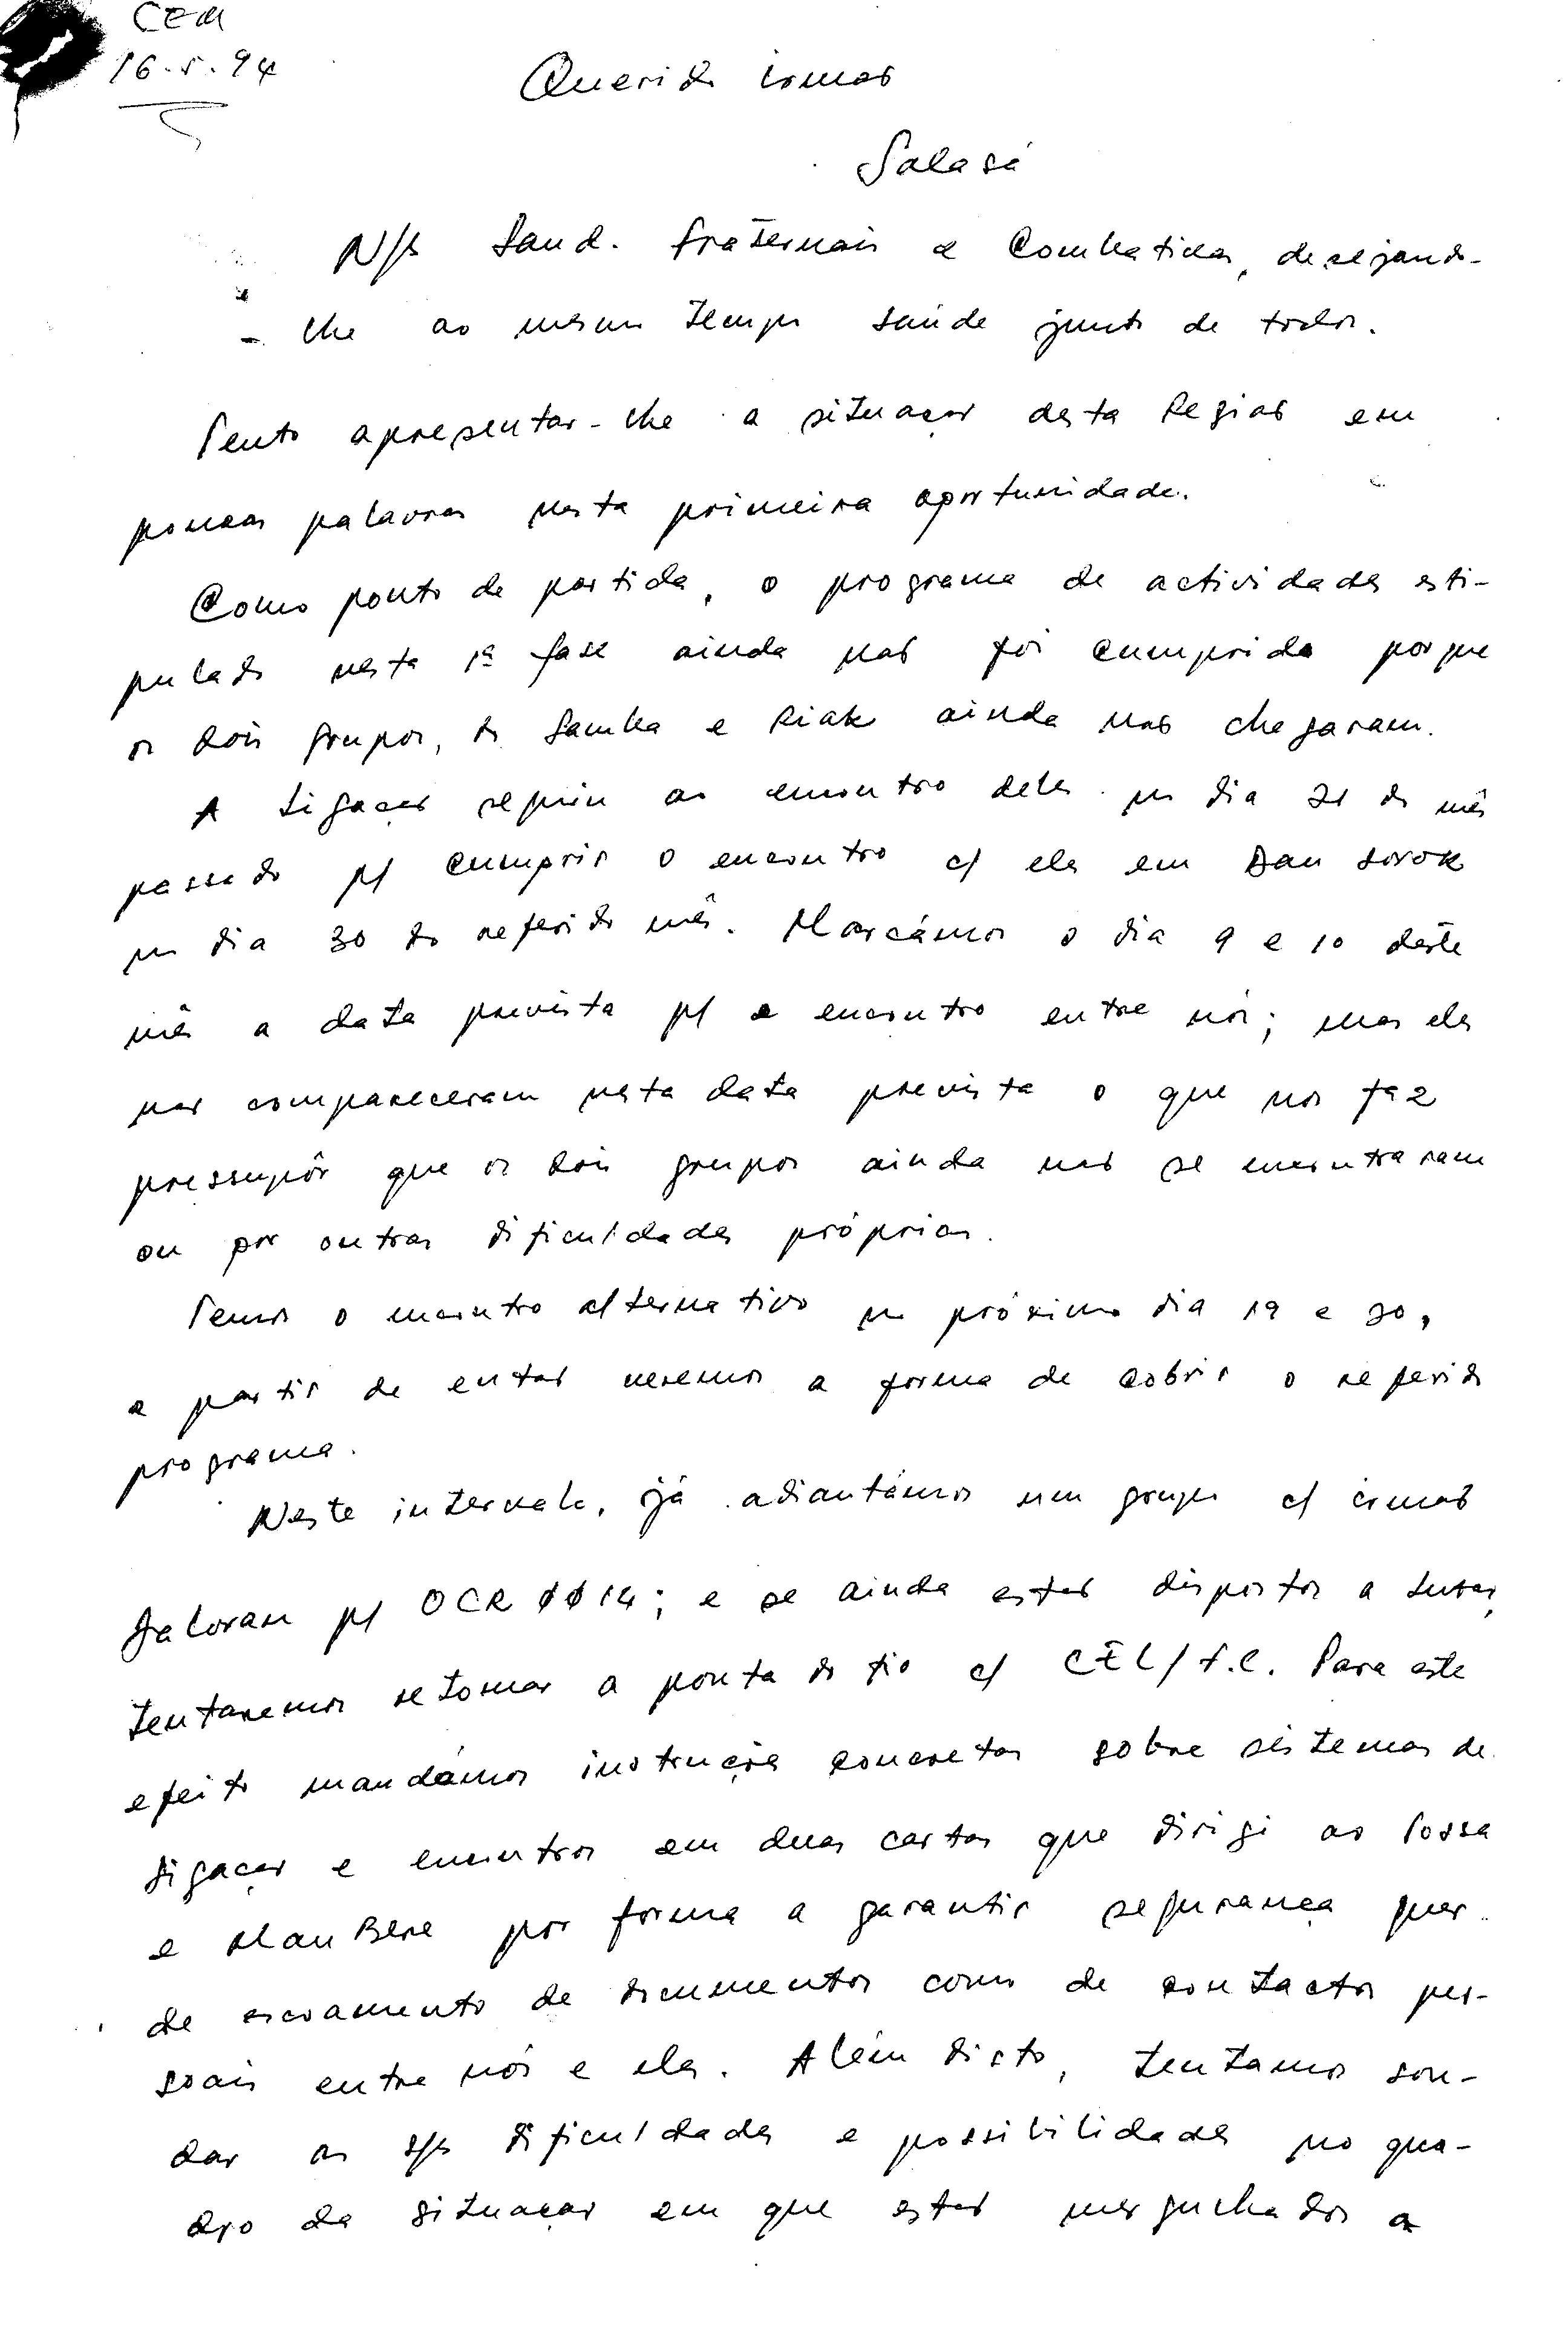 CEM
16.5.94
Querido irmão
Salasá
N/s Saud. fraternais e Combativas, desejando-
- lhe ao mesmo tempo saúde junto de todos.
Tento apresentar-lhe a situação desta Região em
poucas palavras nesta primeira oportunidade.
Como ponto de partida, o programa de actividades esti-
pulado nesta 1ª fase ainda não foi cumprido porque
os dois grupos, do Samba e Riak ainda não chegaram.
A Ligação seguiu ao encontro deles no dia 21 do mês
passado p/ cumprir o encontro c/ eles em Dau Sorok
no dia 30 do referido mês. Marcámos o dia 9 e 10 deste
mês a data prevista p/ o encontro entre nós; mas eles
não compareceram nesta data prevista o que nos faz
pressupôr que os dois grupos ainda não se encontraram
ou por outras dificuldades próprias.
Temos o encontro alternativo no próximo dia 19 e 20,
a partir de então veremos a forma de cobrir o referido
programa.
Neste intervalo, já adiantámos um grupo c/ irmão
Saloran p/ OCR 0014; e se ainda estão dispostos a lutar,
tentaremos retomar a ponta do fio c/ CEL/F.C. Para este
efeito mandámos instruções concretas sobre sistemas de
ligação e encontros em duas cartas que dirigi ao Sossa
e Mau Bere por forma a garantir segurança quer
de escoamento de documentos como de contactos pes-
soais entre nós e eles. Além disto, tentamos son-
dar as s/s dificuldades e possibilidades no qua-
dro da situação em que estão mergulhados a